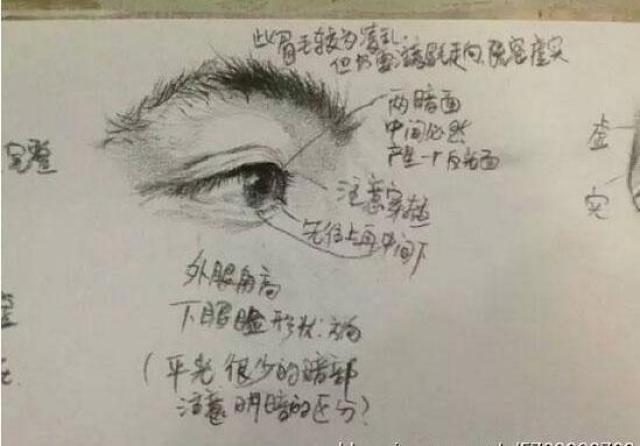 此眉毛较为凌乱.
但仍要注意毛走向,疏密虚实
两暗面
中间必然
产生一个反光面
完整
注意穿插
先往上再中间下
虚
实
外眼角高
下眼睑形状.方向
(平光 很少的暗部
注意明暗的区分?